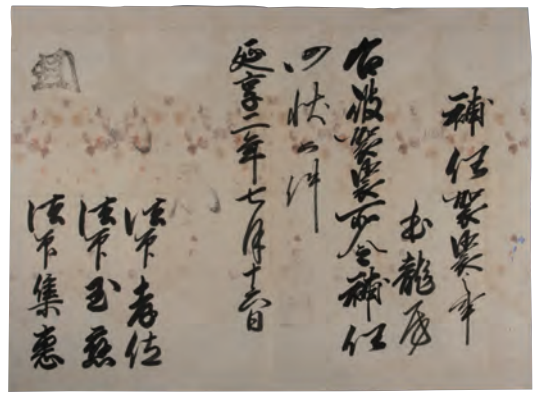 補任袈裟之事
龍房
右彼袈裟所令補任
仍状如件
延享二年七月十六日
法印孝
法印玉
法印集恵